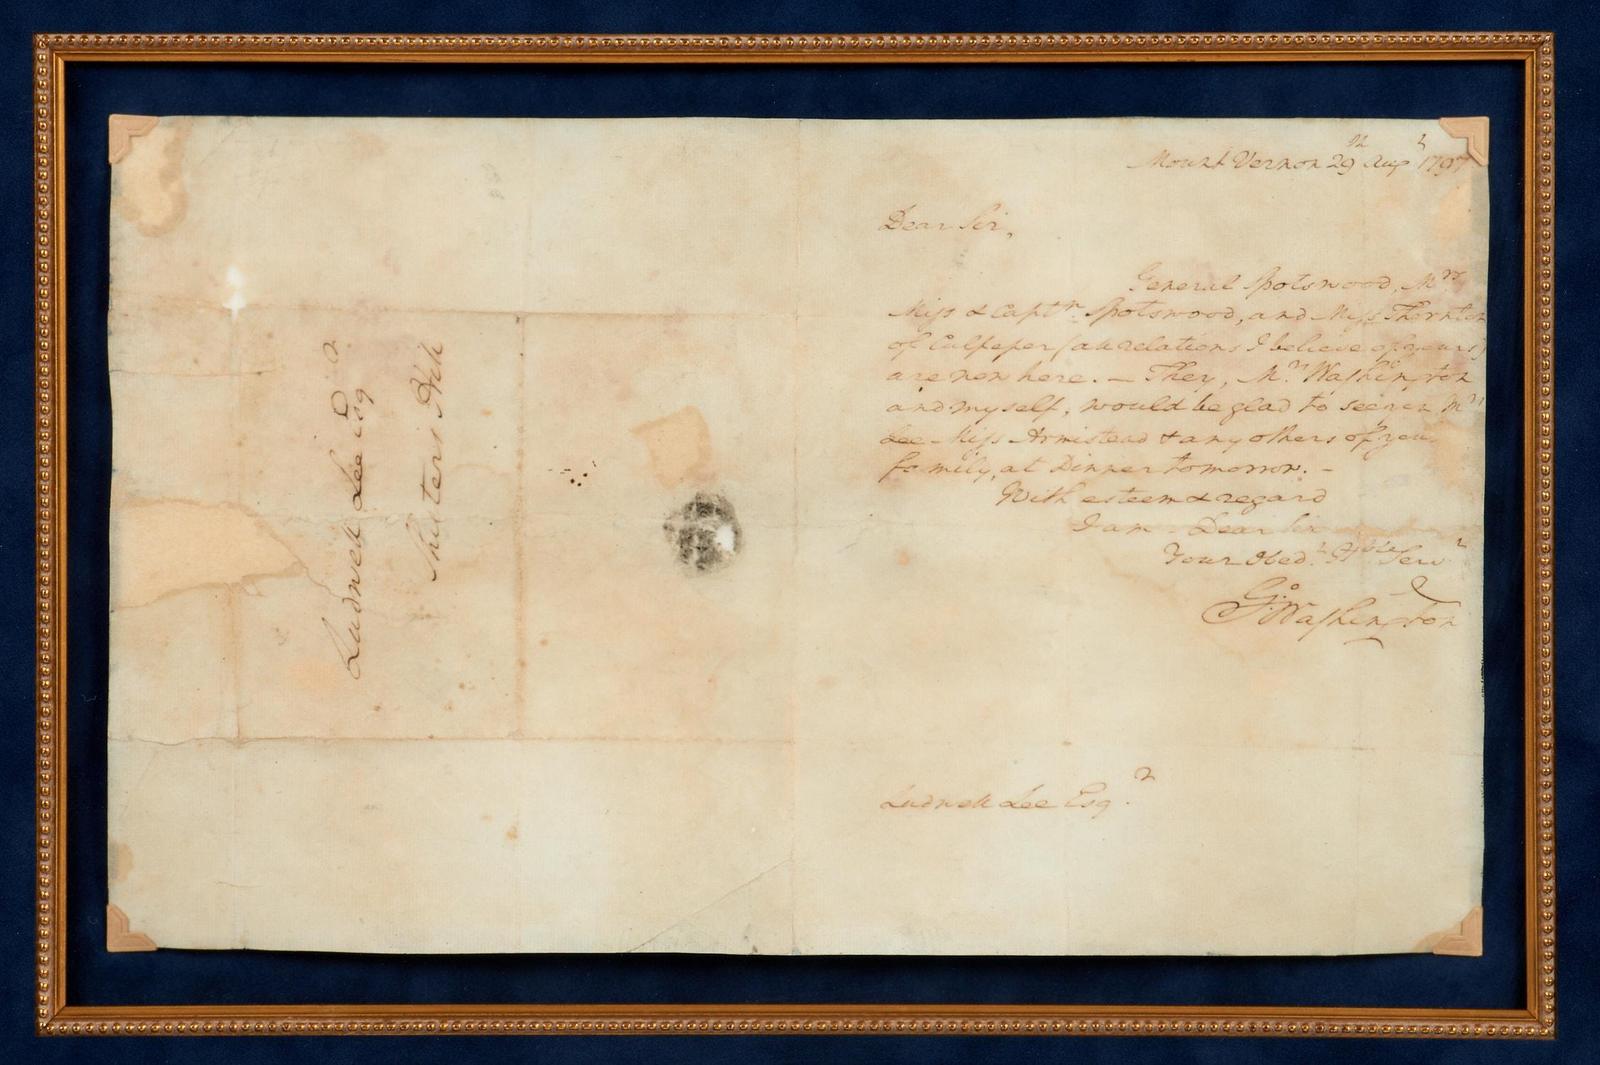 Ludwell Lee Esqr
Shuters Hill
Mount Vernon 29th Augt 1797
Dear Sir,
General Spotswood, Mrs
Miss & Captn Spotswood, and Miss Thornton
of Culpeper (all relations I believe of yours)
are now here. — They, Mrs Washington
and myself, would be glad to see you Mrs
Lee Miss Armistead & any others of your
family, at Dinner tomorrow. —
With esteem & regard
I am - Dear Sir
Your Obedt Hble Servt
Go: Washington
Ludwell Lee Esqr